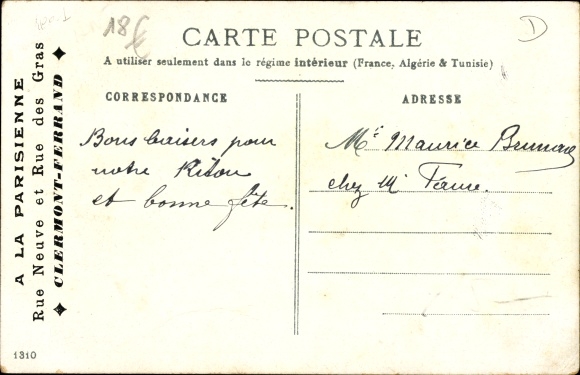 18€
D
CARTE POSTALE
A utiliser seulement dans le régime intérieur (France, Algérie & Tunisie)
CORRESPONDANCE
ADRESSE
Bons baisers pour
notre Riton
et bonne fête.
Mr Maurice
chez Mr
A LA PARISIENNE
Rue Neuve et Rue des Gras
CLERMONT-FERRAND
1310